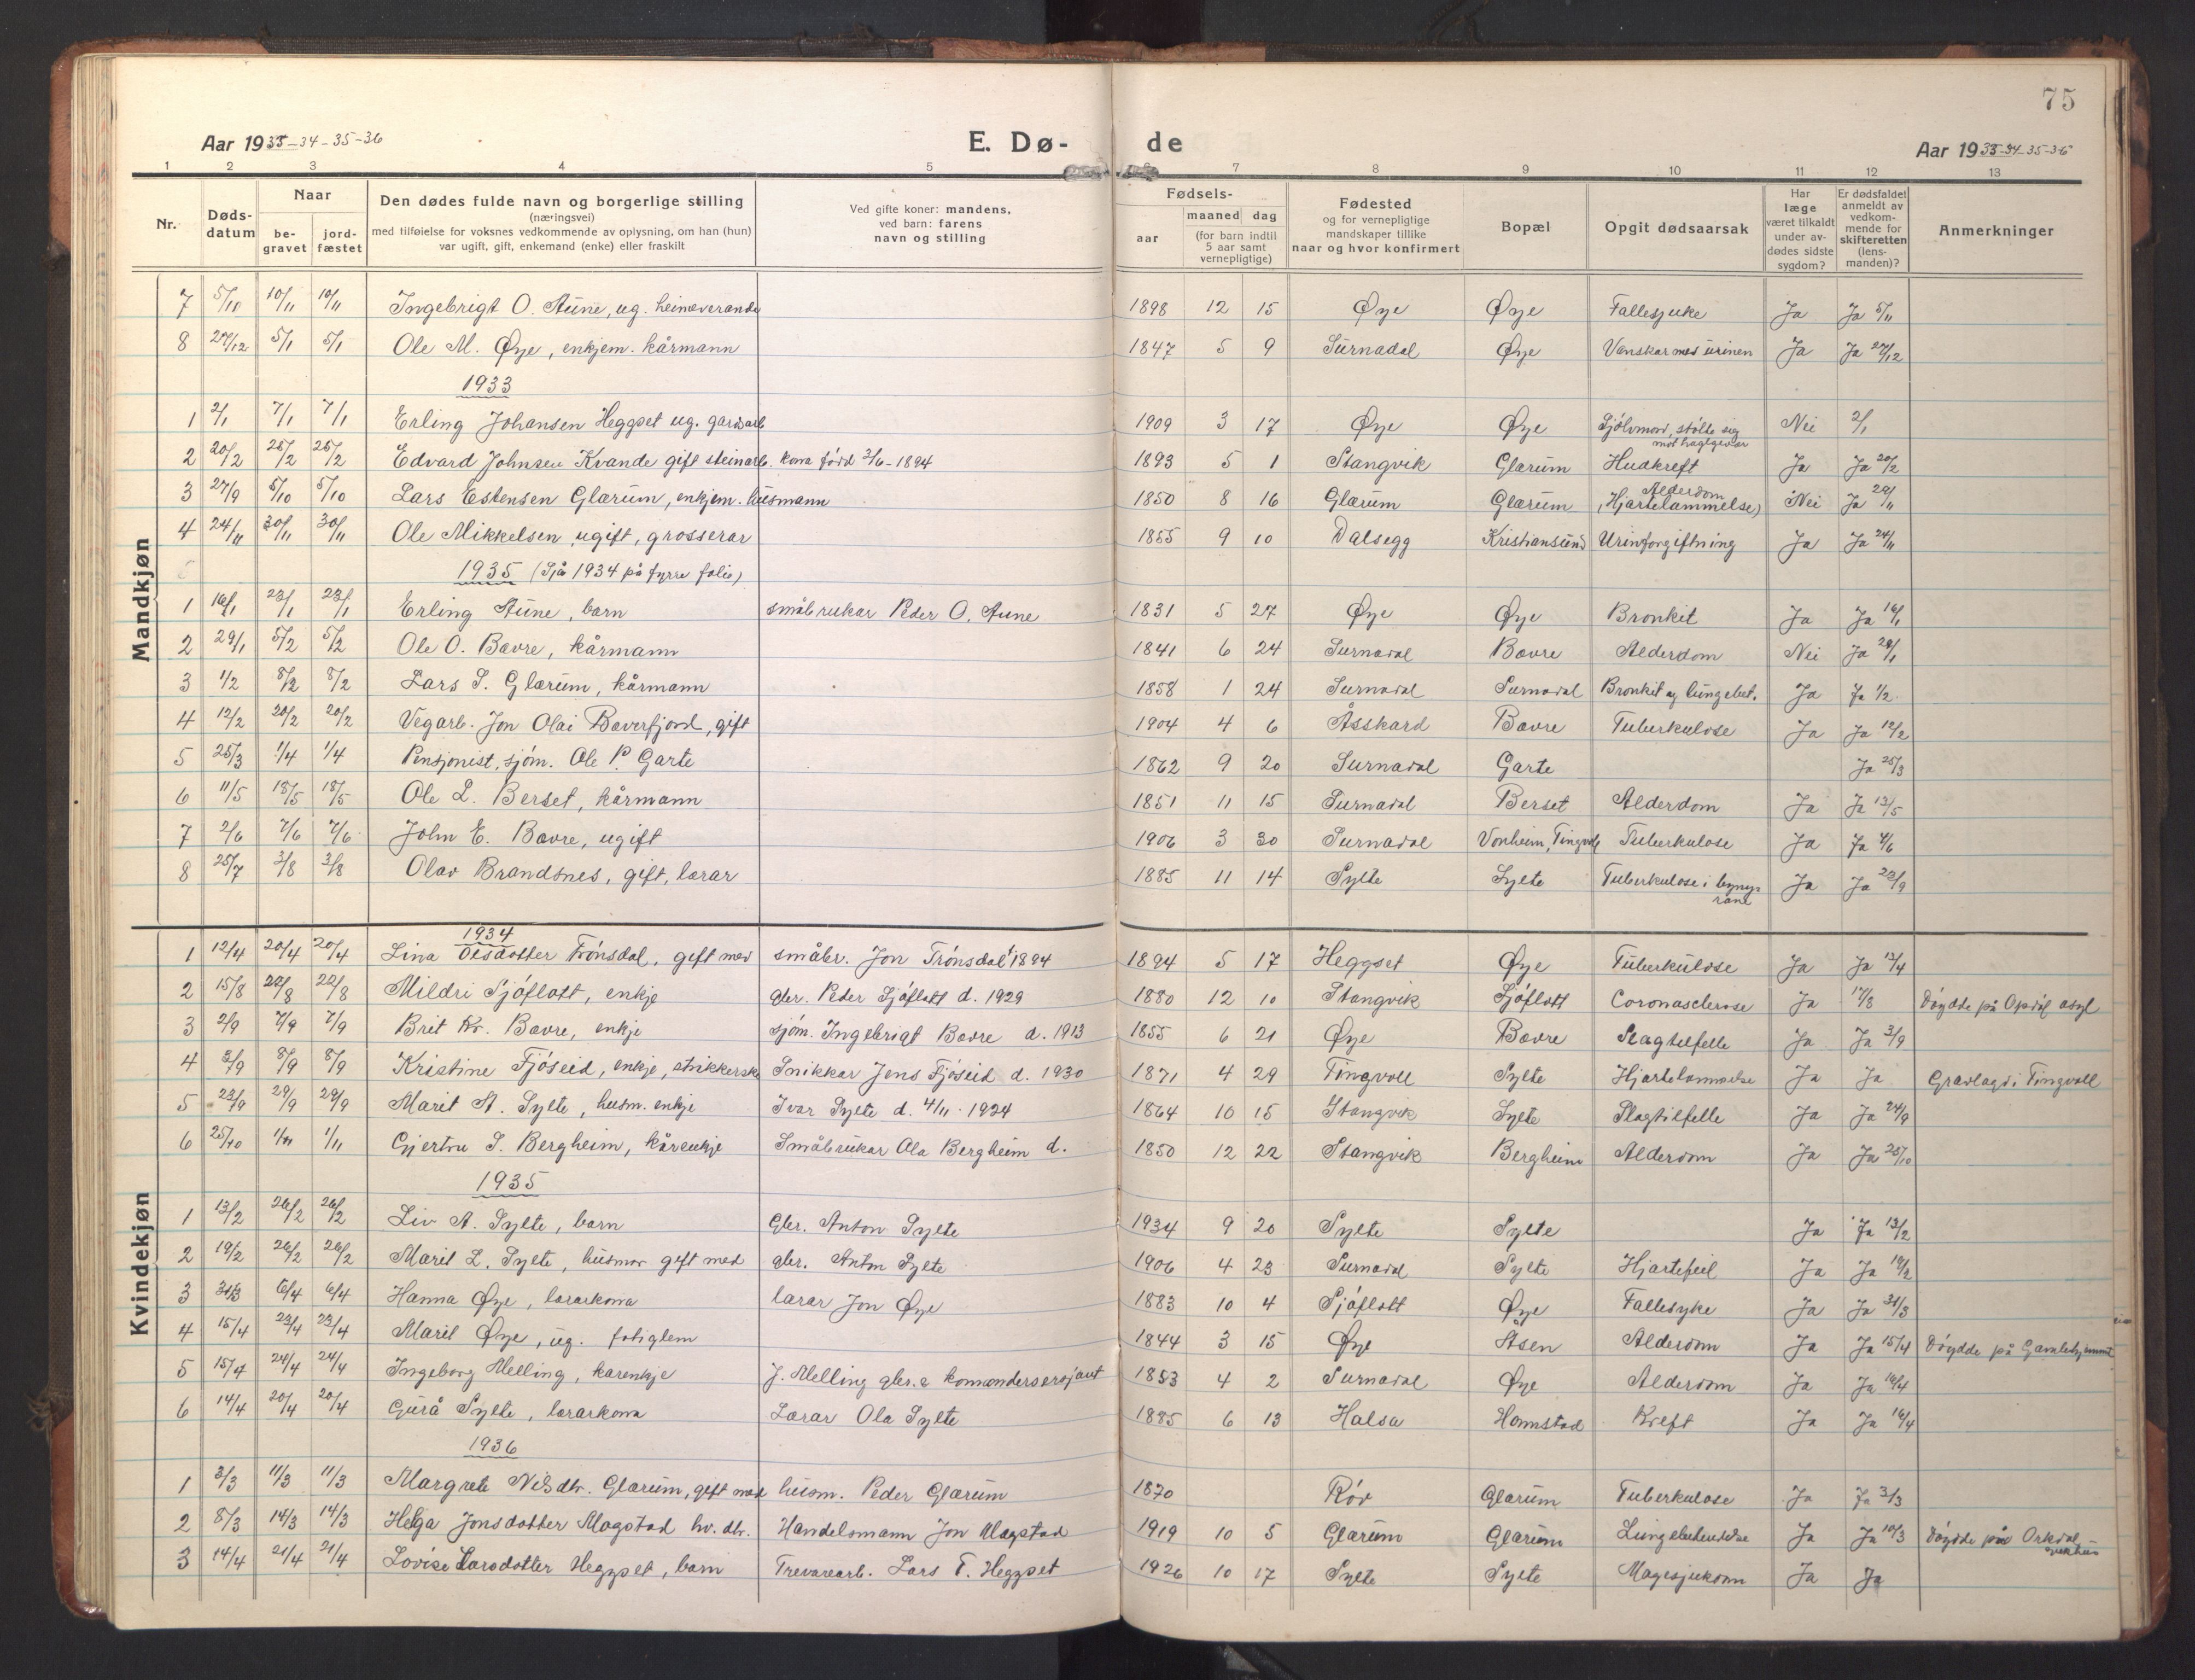 75
Aar 1933-34-35-36 E. Dø- de Aar 1933-34-35-36
1 2 3 4 5 6 7 8 9 10 11 12 13
Nr. Døds-datum Naar be-gravet jord-fæstet Den dødes fulde navn og borgerlige stilling (næringsvei) med tilføielse for voksnes vedkommende av oplysning, om han (hun) var ugift, gift, enkemand (enke) eller fraskilt Ved gifte koner: mandens, ved barn: farens navn og stilling Fødsels- aar maaned dag (for barn indtil 5 aar samt vernepligtige) Fødested og for vernepligtige mandskaper tillike naar og hvor konfirmert Bopæl Opgit dødsaarsak Har læge været tilkaldt under av-dødes sidste sygdom? Er dødsfaldet anmeldt av vedkom-mende for skifteretten (lens-manden)? Anmerkninger
Mandkjøn
7 5/11 10/11 10/11 Ingebrigt O. Aune, ug. heimeverande 1898 12 15 Øye Øye Fallesjuke Ja Ja 5/11
8 27/12 5/1 5/1 Ole M. Øye, enkjem. kårmann 1847 5 9 Surnadal Øye Vanskar med urinen Ja Ja 27/12
1933
1 2/1 7/1 7/1 Erling Johansen Heggset ug. gardsarb 1909 3 17 Øye Øye Sjølvmord, Nei 2/1
2 20/2 25/2 25/2 Edvard Johnsen Kvande gift steinarb. kona fødd 2/6-1894 1893 5 1 Stangvik Glærum Hudkreft Ja Ja 20/2
3 27/9 5/10 5/10 Lars Estensen Glærum, enkjem. husmann 1850 8 16 Glærum Glærum Alderdom (Hjartelammelse) Nei Ja
4 24/11 30/11 30/11 Ole Mikkelsen, ugift, grosserar 1855 9 10 Dalsegg Kristiansund Urinforgiftning Ja Ja 24/11
1935 (Sjå 1934 på fyrre folio)
1 16/1 23/1 23/1 Erling Aune, barn småbrukar Peder O. Aune 1831 5 27 Øye Øye Bronkit Ja Ja 16/1
2 29/1 5/2 5/2 Ole O. Bævre, kårmann 1841 6 24 Surnadal Bævre Alderdom Nei Ja 29/1
3 1/2 8/2 8/2 Lars S. Glærum, kårmann 1858 1 24 Surnadal Surnadal Bronkit og lungebet. Ja Ja 1/2
4 12/2 20/2 20/2 Vegarb. Jon Olai Bæverfjord, gift 1904 4 6 Åsskard Bævre Tuberkulose Ja Ja 12/2
5 25/3 1/4 1/4 Pensjonist, sjøm. Ole P. Garte 1862 9 20 Surnadal Garte Ja 25/3
6 11/5 18/5 18/5 Ole L. Berset, kårmann 1851 11 15 Surnadal Berset Alderdom Ja Ja 13/5
7 2/6 7/6 7/6 John E. Bævre, ugift 1906 3 30 Surnadal Vonheim, Tingvoll Tuberkulose Ja Ja 4/6
8 25/7 3/8 3/8 Olav Brandsnes, gift, lærar 1885 11 14 Sylte Sylte Tuberkulose i Ja Ja
Kvindekjøn
1934
1 12/4 20/4 20/4 Lina Olsdotter Trønsdal, gift med småbr. Jon Trønsdal f 1894 1894 5 17 Heggset Øye Tuberkulose Ja Ja 12/4
2 15/8 22/8 22/8 Mildri Sjøflott, enkje gbr. Peder Sjøflott d. 1929 1880 12 10 Stangvik Sjøflott Coronasclerose Ja 17/8 Døydde på Opdøl asyl
3 2/9 7/9 7/9 Brit Kr. Bævre, enkje sjøm. Ingebrigt Bævre d. 1913 1855 6 21 Øye Bævre Slagtilfelle Ja Ja 3/9
4 3/9 8/9 8/9 Kristine Fjøseid, enkje, strikkerske Snikkar Jens Fjøseid d. 1930 1871 4 29 Tingvoll Sylte Hjartelammelse Ja Ja Gravlagd i Tingvoll
5 23/9 29/9 29/9 Marit A. Sylte, husm. enkje Ivar Sylte d. 4/11-1924 1864 10 15 Stangvik Sylte Slagtilfelle Ja Ja 24/9
6 25/10 1/11 1/11 Gjertru S. Bergheim, kårenkje Småbrukar Ola Bergheim d. 1850 12 22 Stangvik Bergheim Alderdom Ja Ja 25/10
1935
1 13/2 26/2 26/2 Liv A. Sylte, barn Gbr. Anton Sylte 1934 9 20 Sylte Sylte Ja Ja 13/2
2 19/2 26/2 26/2 Marit L. Sylte, husmor gift med gbr. Anton Sylte 1906 4 23 Surnadal Sylte Hjartefeil Ja Ja 19/2
3 31/3 6/4 6/4 Hanna Øye, lærarkona lærar Jon Øye 1883 10 4 Sjøflott Øye Fallesyke Ja Ja 31/3
4 15/4 23/4 23/4 Marit Øye, ug. fatiglem 1844 3 15 Øye Åsen Alderdom Ja Ja 15/4 Døydde på Gamleheimen
5 15/4 24/4 24/4 Ingeborg Melling, kårenkje J. Melling gbr. & kommandersersjant 1853 4 2 Surnadal Øye Alderdom Ja Ja 16/4
6 14/4 20/4 20/4 Gurå Sylte, lærarkona Lærar Ola Sylte 1885 6 13 Halsa Hamnstad Kreft Ja Ja 16/4
1936
1 3/3 11/3 11/3 Margrete Nilsdtr. Glærum, gift med husm. Peder Glærum 1870 Rør Glærum Tuberkulose Ja Ja 3/3
2 8/3 14/3 14/3 Helga Jonsdotter Mogstad hv. dtr. Handelsmann Jon Mogstad 1919 10 5 Glærum Glærum Lungebetendelse Ja Ja 10/3 Døydde på Orkdal sjukhus
3 14/4 21/4 21/4 Lovise Larsdotter Heggset, barn Trevarearb. Lars T. Heggset 1926 10 17 Sylte Sylte Magesjukdom Ja Ja